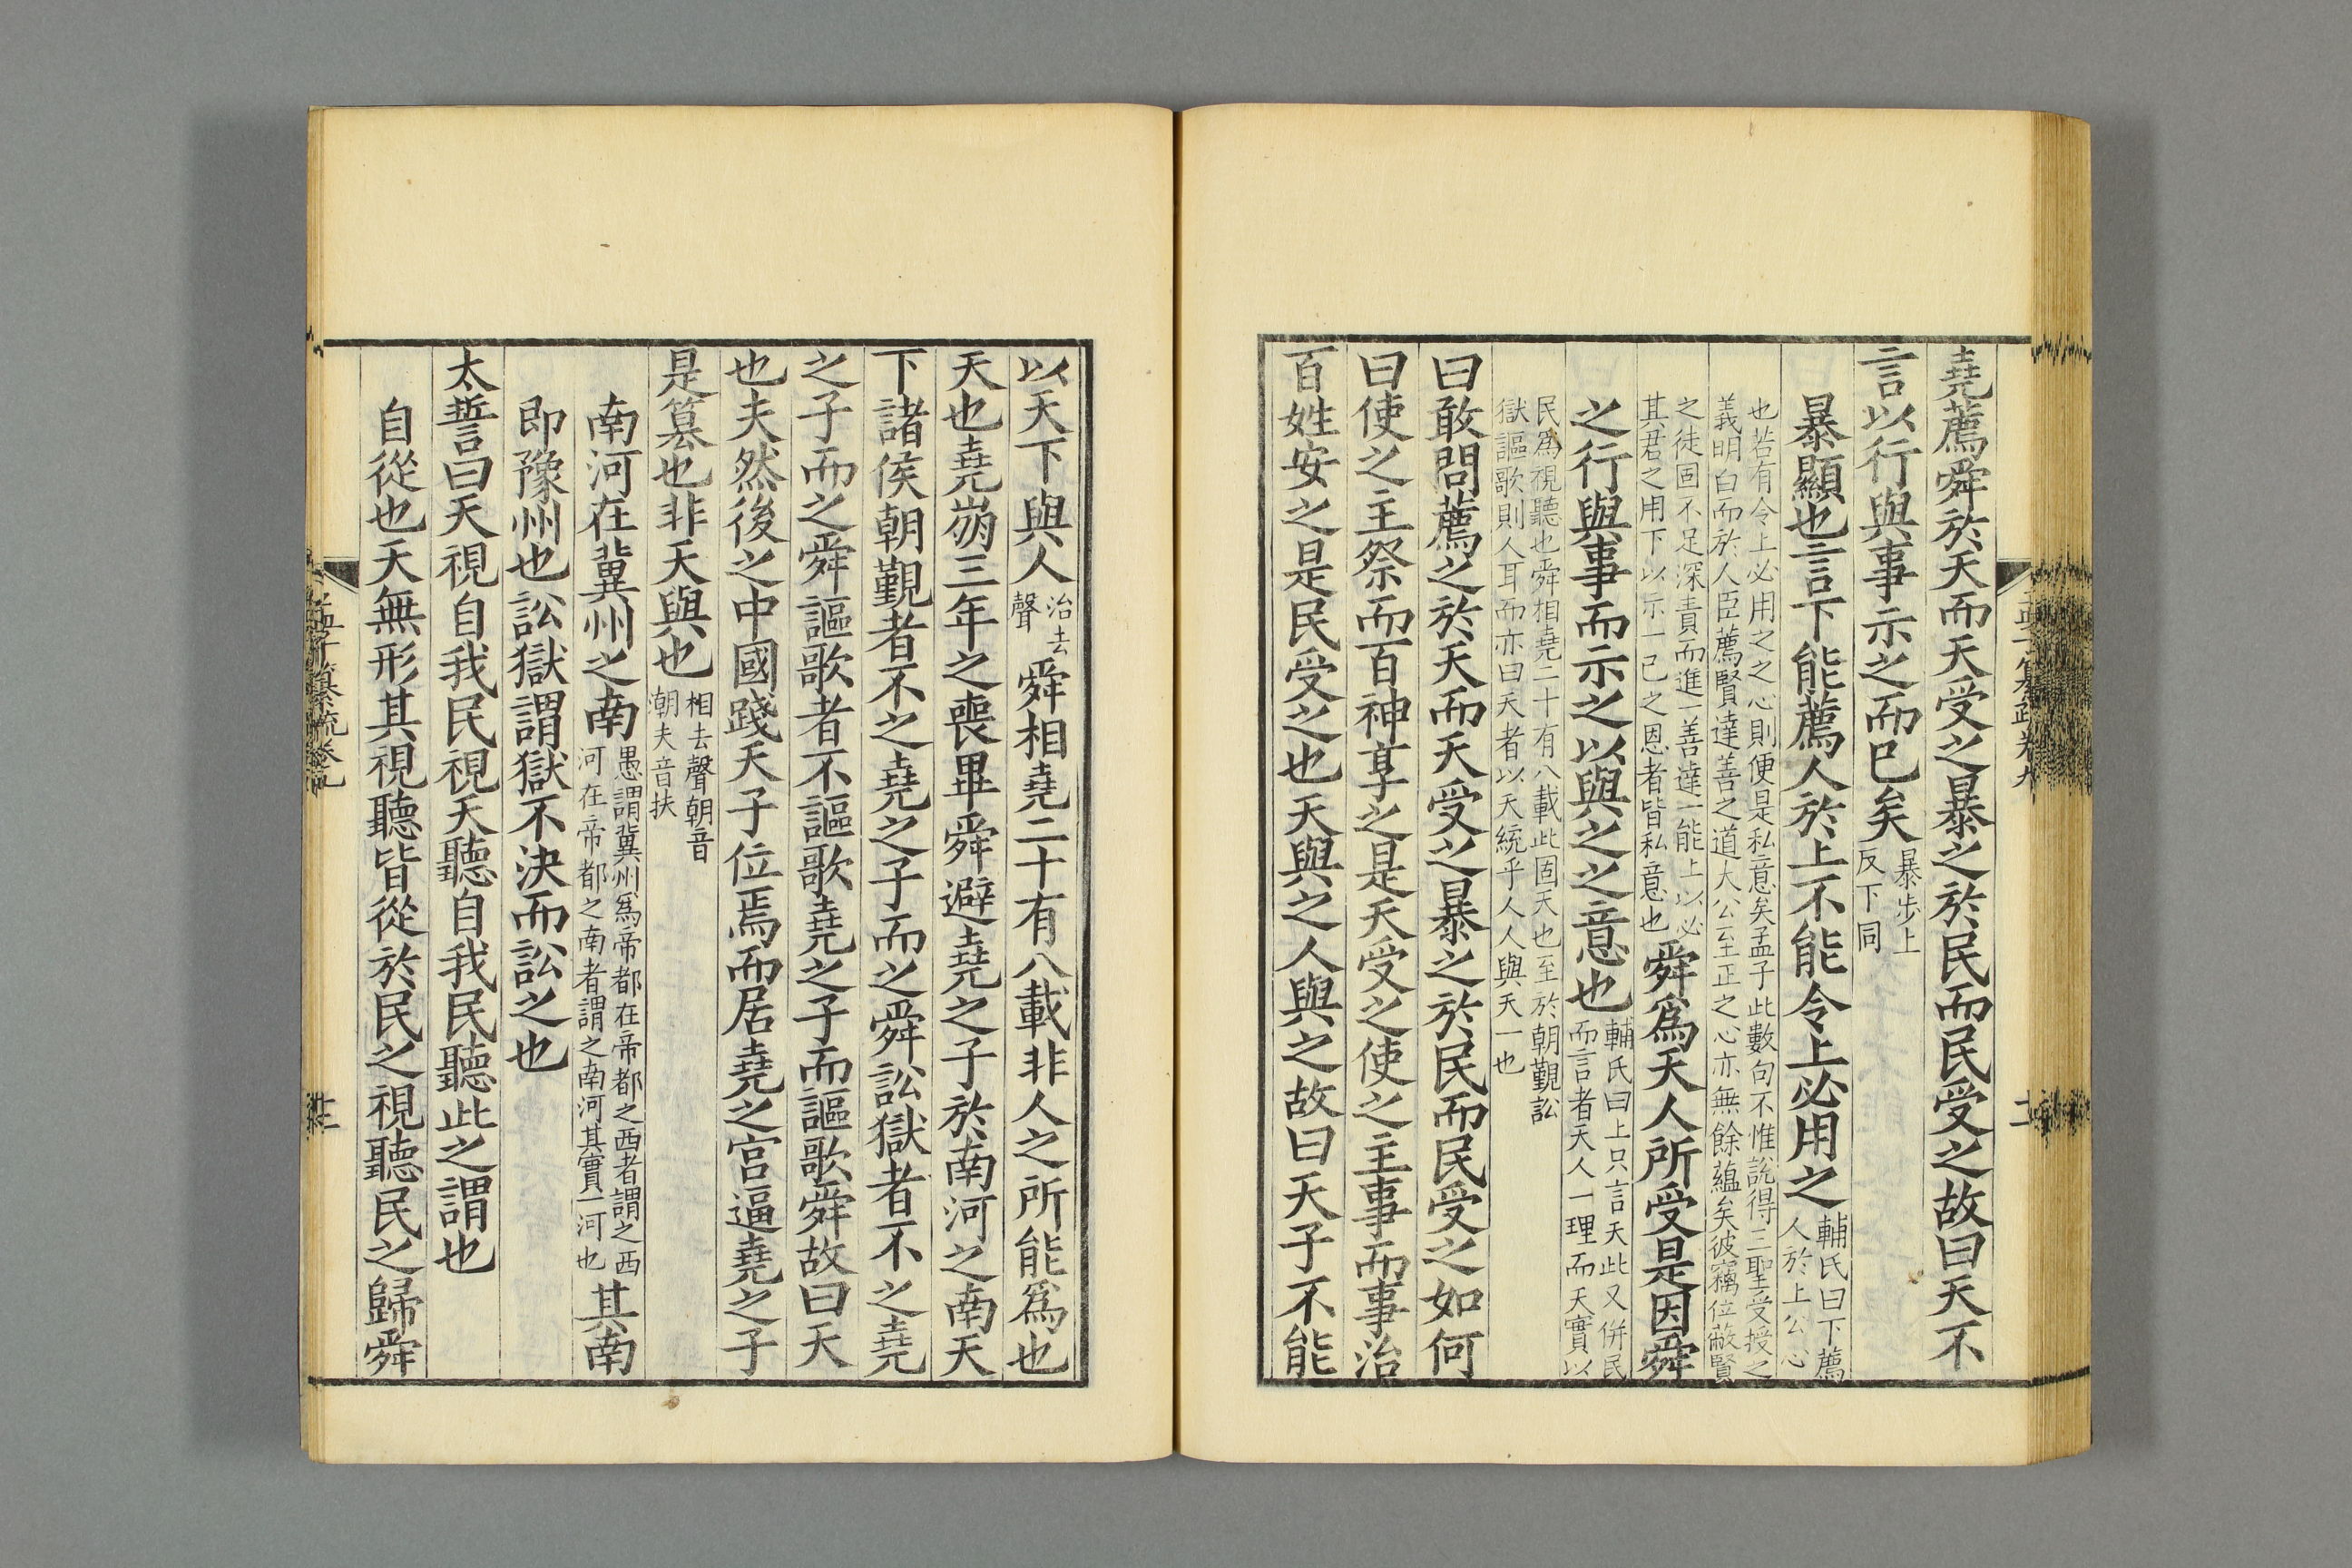 堯薦舜於天而天受之暴之於民而民受之故曰天不
言以行與事示之而已矣
暴步上
反下同
暴顯也言下能薦人於上不能令上必用之
輔氏曰下薦
人於上公心
也若有令上必用之之心則便是私意矣孟子此數句不惟說得三聖受授之
義明白而於人臣薦賢達善之道大公至正之心亦無餘蘊矣彼竊位蔽賢
之徒固不足深責而進一善達一能上以必
其君之用下以示一己之恩者皆私意也
舜爲天人所受是因舜
之行與事而示之以與之之意也
輔氏曰上只言天此又併民
而言者天人一理而天實以
民爲視聽也舜相堯二十有八載此固天也至於朝覲訟
獄謳歌則人耳而亦曰天者以天統乎人人與天一也
曰敢問薦之於天而天受之暴之於民而民受之如何
曰使之主祭而百神享之是天受之使之主事而事治
百姓安之是民受之也天與之人與之故曰天子不能
以天下與人
治去
聲
舜相堯二十有八載非人之所能爲也
天也堯崩三年之喪畢舜避堯之子於南河之南天
下諸侯朝覲者不之堯之子而之舜訟獄者不之堯
之子而之舜謳歌者不謳歌堯之子而謳歌舜故曰天
也夫然後之中國踐天子位焉而居堯之宮逼堯之子
是篡也非天與也
相去聲朝音
潮夫音扶
南河在冀州之南
愚謂冀州爲帝都在帝都之西者謂之西
河在帝都之南者謂之南河其實一河也
其南
即豫州也訟獄謂獄不決而訟之也
太誓曰天視自我民視天聽自我民聽此之謂也
自從也天無形其視聽皆從於民之視聽民之歸舜
孟子纂疏卷九